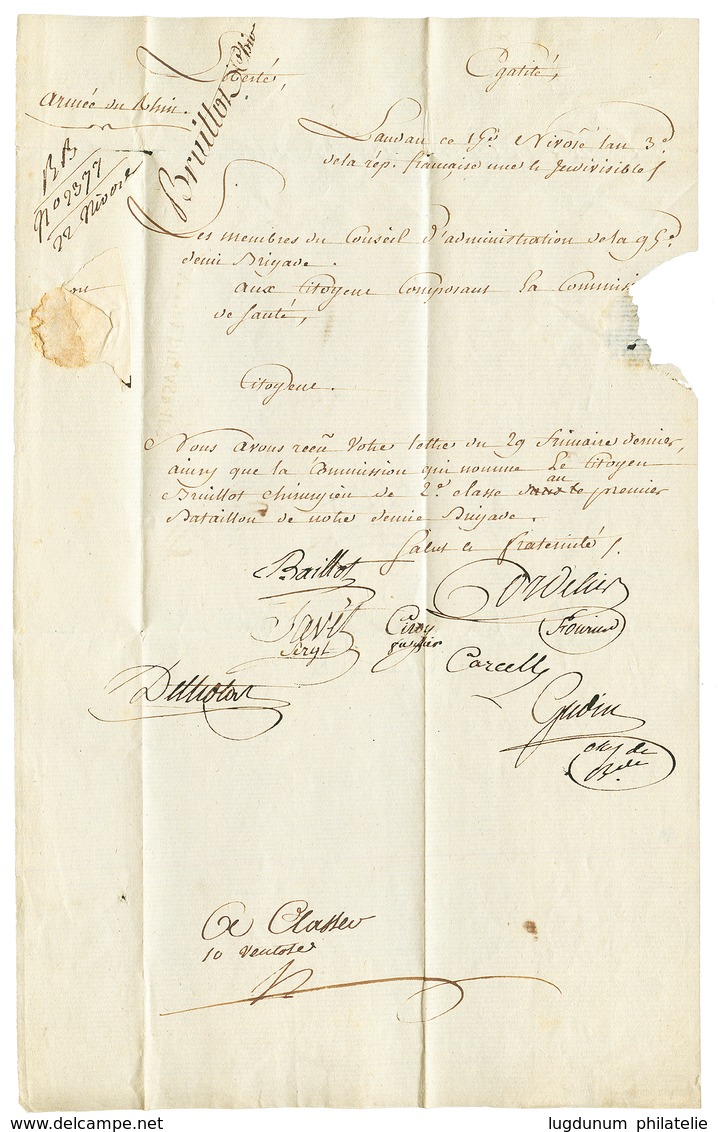 Liberté, Egalité,
Armée du Rhin.
Bruillot Chir
BB
No 2377
22 Nivose
Landau ce 19e. Nivosé lan 3e.
dela rep. francaise une & Indivisible
Les membres du Conseil d'administration de la 95e.
demie Brigade.
aux Citoyens Composant La Commis
de Santé,
Citoyens.
Nous avons reçu Votre lettre du 29 frimaire dernier,
ainsy que la Commission qui nomme Le Citoyen
Bruillot chirurgien de 2e. classe au premier
Bataillon de notre demie Brigade.
Salut & fraternité
Baillot
Cordelier
Fourier
Favet
Sergt
Ciroy
fusilier
Carcelly
Gudin
chef de
Bde
A Classer
10 Ventose
delcampe.net
lugdunum philatelie